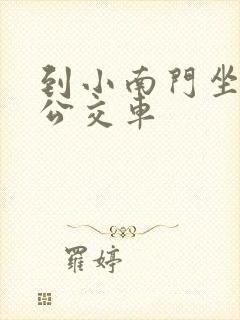 到小南門坐
公交車
羅婷